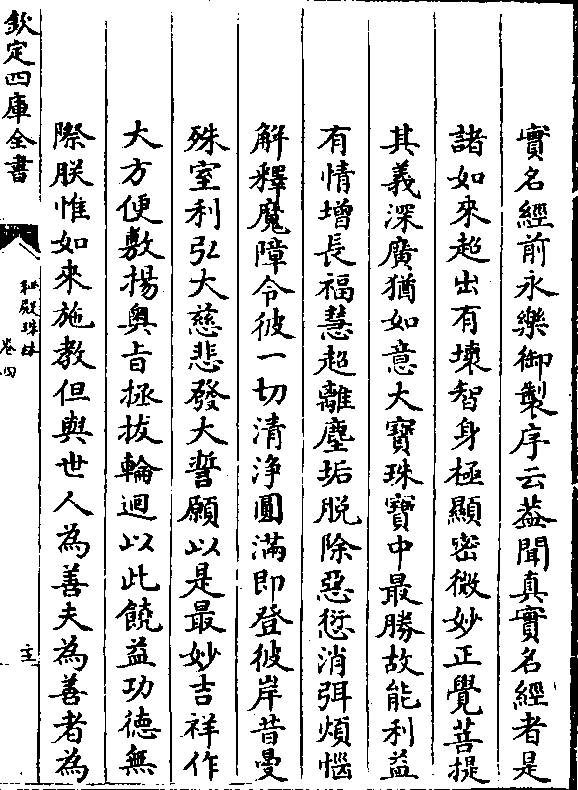 實名經前永樂御製序云葢聞真實名經者是
諸如來超出有壞智身極顯密微妙正覺菩提
其義深廣猶如意大寶珠寶中最勝故能利益
有情增長福慧超離塵垢脱除惡愆消弭煩惱
解釋魔障令彼一切清淨圓滿即登彼岸昔曼
殊室利弘大慈悲發大誓願以是最妙吉祥作
大方便敷揚奥旨拯拔輪迴以此饒益功德無
際朕惟如來施教但與世人為善夫為善者為
欽定四庫全書
秘殿珠林
卷四